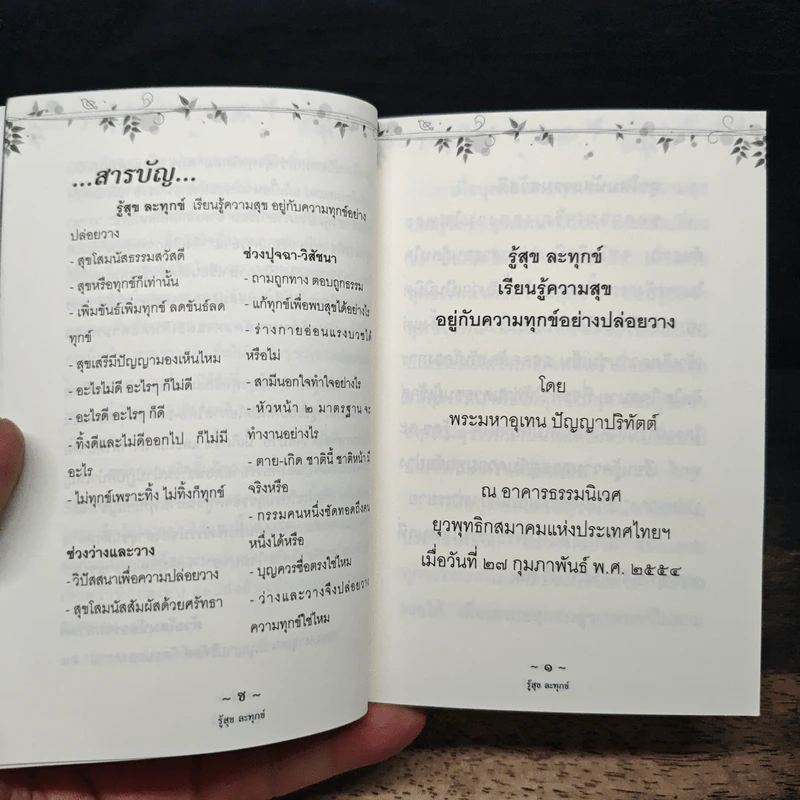 ...สารบัญ...
รู้สุข ละทุกข์ เรียนรู้ความสุข อยู่กับความทุกข์อย่าง
ปล่อยวาง
- สุขโสมนัสธรรมสวัสดี
- สุขหรือทุกข์ก็เท่านั้น
- เพิ่มขันธ์เพิ่มทุกข์ ลดขันธ์ลด
ทุกข์
- สุขเสรีมีปัญญามองเห็นไหม
- อะไรไม่ดี อะไรๆ ก็ไม่ดี
- อะไรดี อะไรๆ ก็ดี
- ทิ้งดีและไม่ดีออกไป ก็ไม่มี
อะไร
- ไม่ทุกข์เพราะทิ้ง ไม่ทิ้งก็ทุกข์
ช่วงว่างและวาง
- วิปัสสนาเพื่อความปล่อยวาง
- สุขโสมนัสสัมผัสด้วยศรัทธา
ช่วงปุจฉา-วิสัชนา
- ถามถูกทาง ตอบถูกธรรม
- แก้ทุกข์เพื่อพบสุขได้อย่างไร
- ร่างกายอ่อนแรงบวชได้
หรือไม่
- สามีนอกใจทำใจอย่างไร
- หัวหน้า ๒ มาตรฐาน จะ
ทำงานอย่างไร
- ตาย-เกิด ชาตินี้ ชาติหน้า มี
จริงหรือ
- กรรมคนหนึ่งซัดทอดถึงคน
หนึ่งได้หรือ
- บุญควรซื่อตรงใช่ไหม
- ว่างและวางจึงปล่อยวาง
ความทุกข์ใช่ไหม
~ ซ ~
รู้สุข ละทุกข์
รู้สุข ละทุกข์
เรียนรู้ความสุข
อยู่กับความทุกข์อย่างปล่อยวาง
โดย
พระมหาอุเทน ปัญญาปริทัตต์
ณ อาคารธรรมนิเวศ
ยุวพุทธิกสมาคมแห่งประเทศไทยฯ
เมื่อวันที่ ๒๗ กุมภาพันธ์ พ.ศ. ๒๕๕๔
~ ๑ ~
รู้สุข ละทุกข์